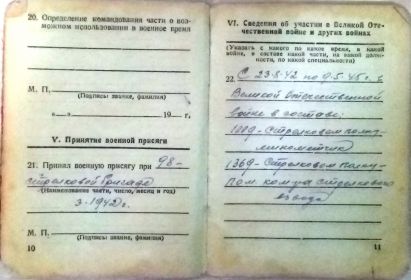 20. Определение командования части о воз-
можном использовании в военное время
М. П.
(Подпись звание, фамилия)
«  »  19  г.
V. Принятие военной присяги
21. Принял военную присягу при 98-
стрелковой бригаде
(Наименование части, число, месяц и год)
3.1942г.
М. П.
(Подпись звание, фамилия)
10
VI. Сведения об участии в Великой Оте-
чественной войне и других войнах
(Указать с какого по какое время, в какой
войне, в составе какой части, на какой долж-
ности, по какой специальности)
22. С 23.8.42 по 9.5.45г. в
Великой Отечественной
войне в составе:
стрелковом полку-
минометчик
1369- Стрелковом полку-
пом. ком-ра стрелкового
взвода
11